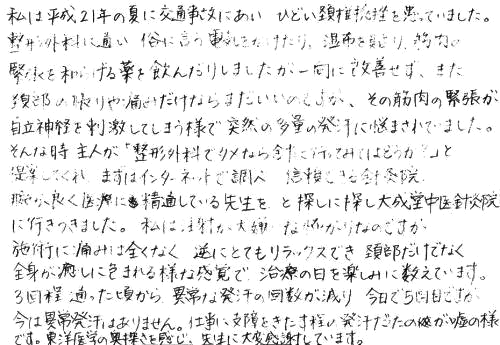 私は平成21年の夏に交通事故にあい ひどい頚椎捻挫を患っていました。
整形外科に通い 俗に言う電気をかけたり、湿布を貼り、筋肉の
緊張を和らげる薬を飲んだりしましたが一向に改善せず、また
頚部の張りや痛みだけならまだいいのですが、その筋肉の緊張が
自立神経を刺激してしまう様で突然の多量の発汗に悩まされていました。
そんな時主人が「整形外科でダメなら針に行ってみてはどうか?」と
提案してくれ、まずはインターネットで調べ 信頼できる針灸院
腕が良く医療に精通している先生を と探しに探し大成堂中医針灸院
に行きつきました。 私は注射が大嫌いな怖がりなのですが
施術に痛みは全くなく 逆にとてもリラックスでき 頚部だけでなく
全身が癒しに包まれる様な感覚で 治療の日を楽しみに数えています。
3回程 通った頃から 異常な発汗の回数が減り 今日で5回目ですが
今は異常発汗はありません。仕事に支障をきたす程の発汗だったのが嘘の様
です。東洋医学の奥深さを感じ、先生に大変感謝しています。